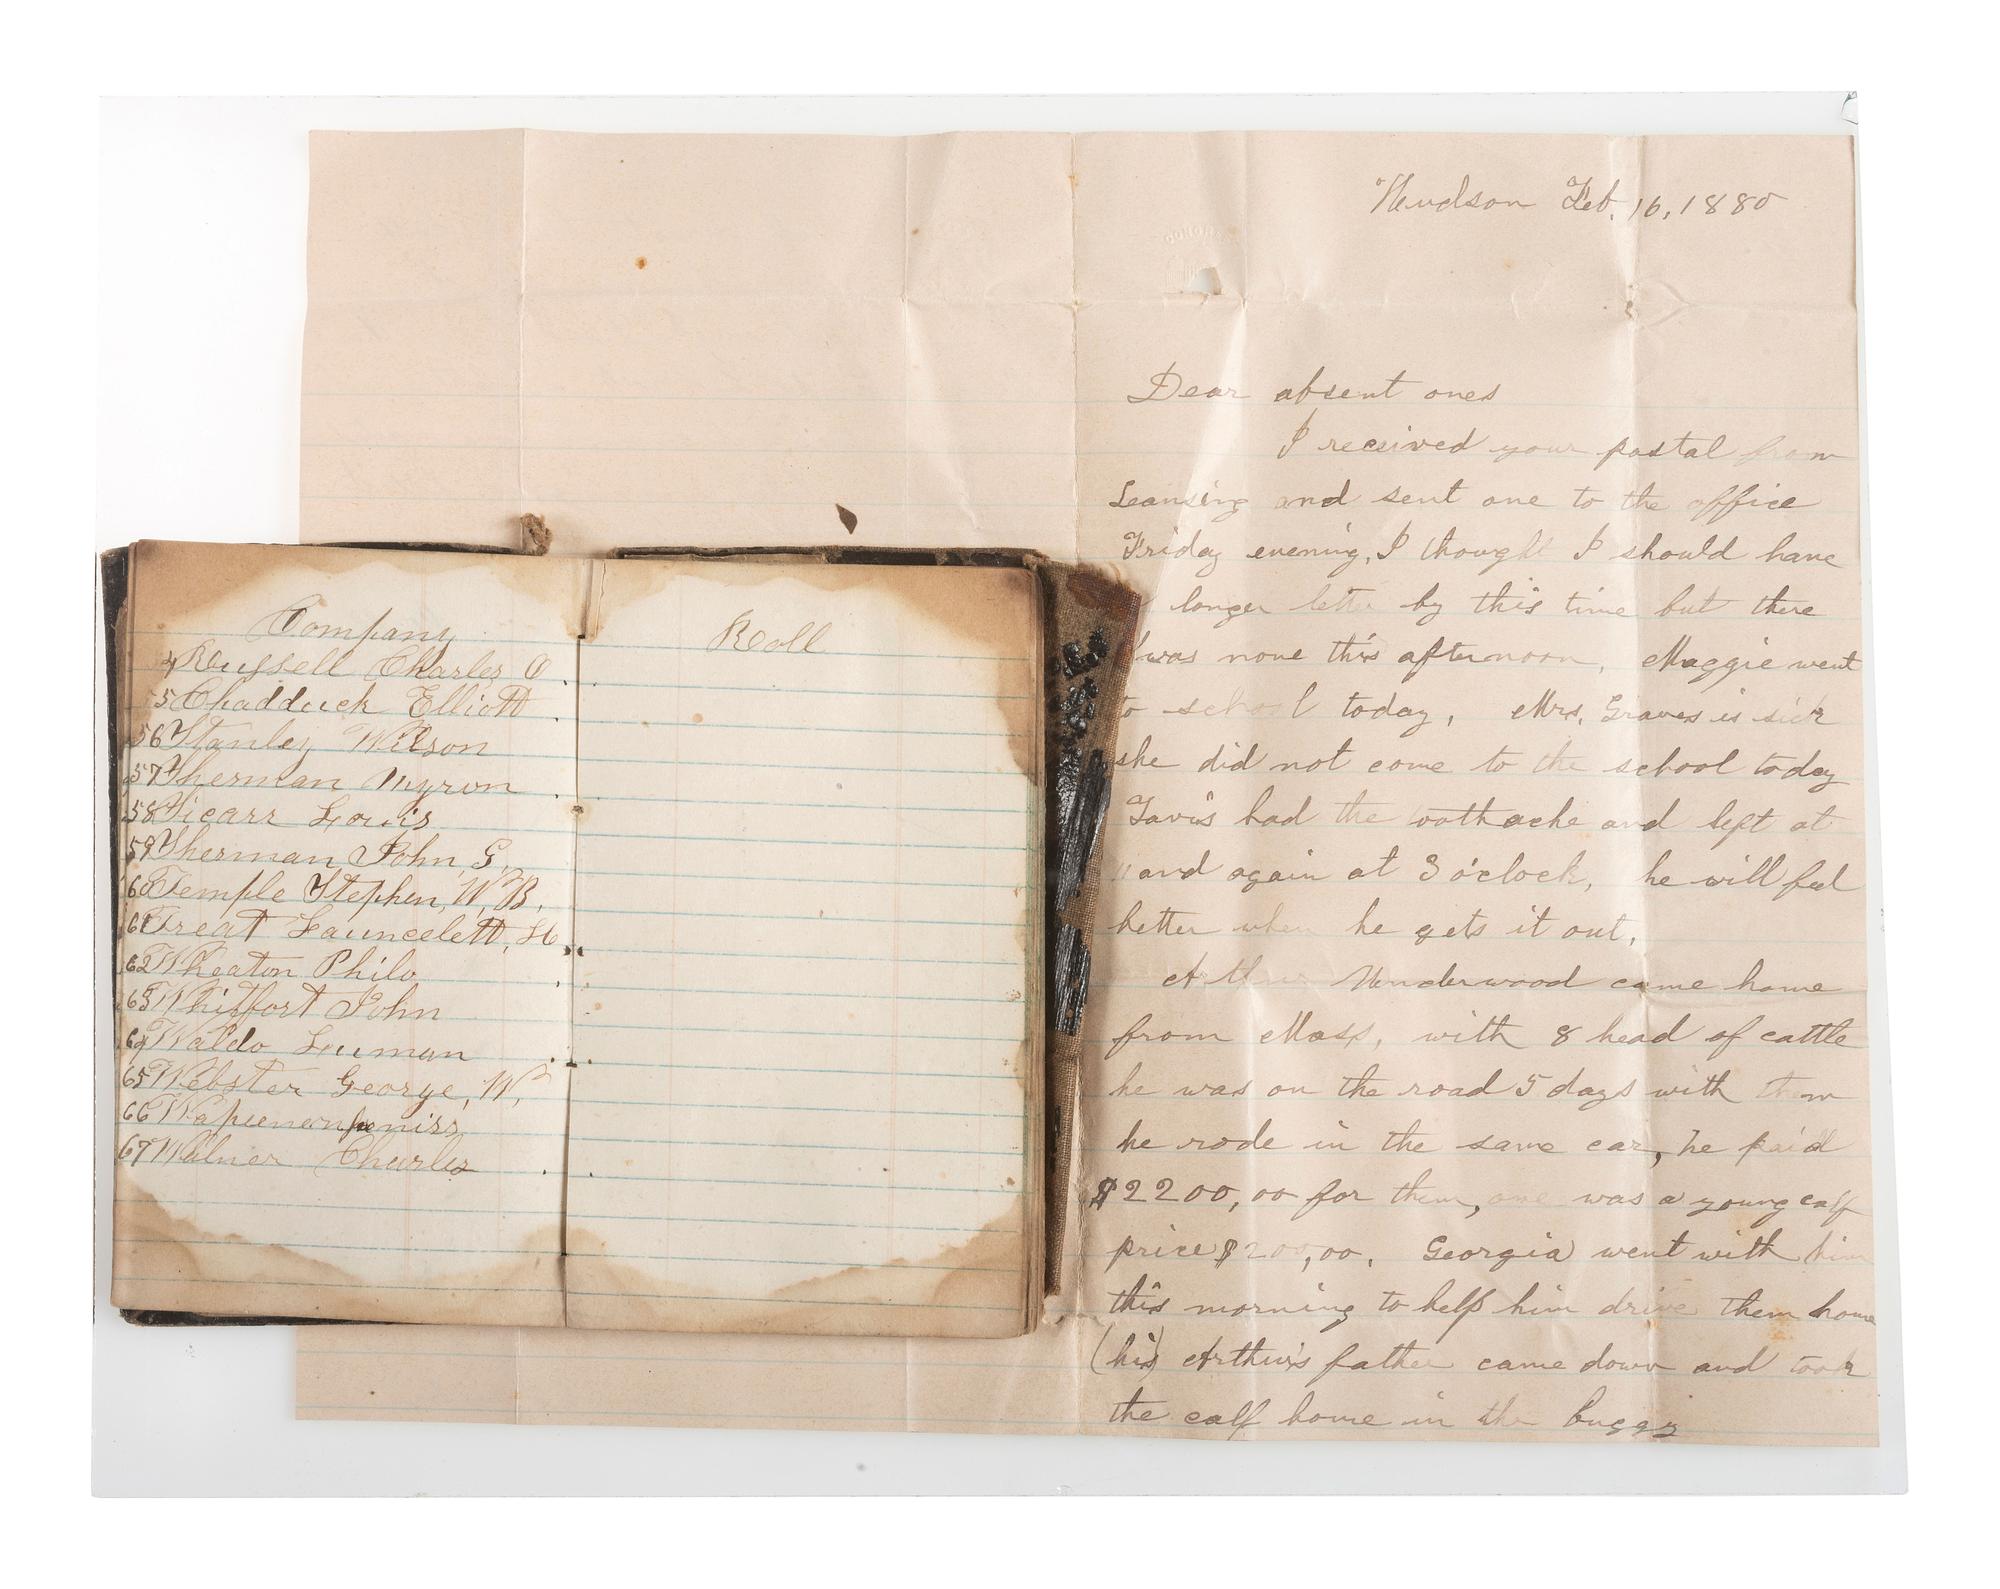 Company Roll
4 Russell Charles O
55 Chadduck Elliott
56 Stanley Wilson
57 Sherman Myron
58 Sicarr Louis
59 Sherman John, G,
60 Temple Stephen, W, B,
61 Treat Launcelett, H
62 Wheaton Philo
63 Whitfort John
64 Waldo Luman
65 Webster George, W,
66
67 Wilner Charles
Hudson Feb. 16, 1880
CONGRESS
Dear absent ones
I received your postal from
Leansing and sent one to the office
Friday evening, I thought I should have
longer letter by this time but there
was none this afternoon, Maggie went
to school today, Mrs, Graves is sick
she did not come to the school today
had the toothache and left at
11 and again at 3 o'clock, he will feel
better when he gets it out,
Arthur Underwood came home
from Mass, with 8 head of cattle
he was on the road 5 days with them
he rode in the same car, he paid
$2200,00 for them, one was a young calf
price $200,00. Georgia went with him
this morning to help him drive them home
(his) Arthur's father came down and took
the calf home in the buggy